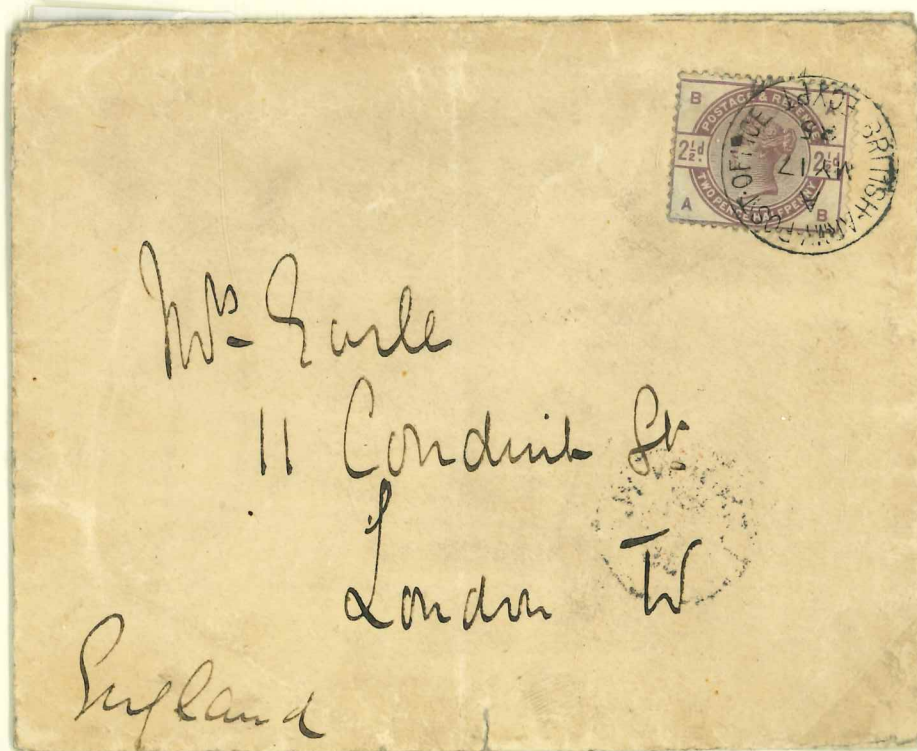 B
POSTAGE & REVENUE
2½d. 2½d.
TWO PENCE HALFPENNY
A B
BRITISH-ARMY-POST-OFFICE EGYPT
A
MY 17
85
Mrs Earle
11 Conduit St
London W
England